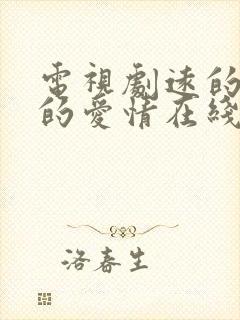 電視劇速的
的愛情在綫
洛春生